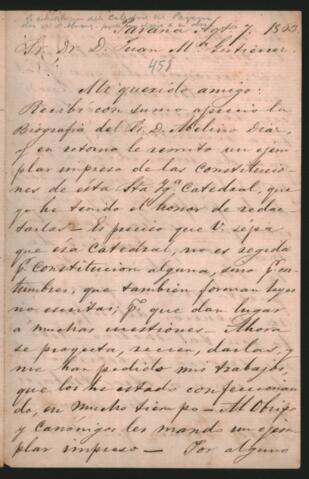 Paraná Agto 7. 18
Sr. Dr. D. Juan Ma. Gutierrez
458
Mi querido amigo:
Recibo con sumo aprecio la
Biografia del Sr. D. Avelino Diaz,
y en retorno le remito un ejem
plar impreso de las Constitucio
nes de esta Sta Yga. Catedral, que
yo he tenido el honor de redac
tarlas – Es preciso que V. sepa
que esa Catedral, no es regida
pr. Constitucion alguna, sino pr. cos
tumbres, que tambien forman leyes
no escritas; pr. que dan lugar
a muchas cuestiones – Ahora
se proyecta, recien, darlas, y
me han pedido mis trabajos,
que los he estado confeccionan
do, en mucho tiempo – Al Obispo
y Canónigos les mando un ejem
plar impreso – Por alguno